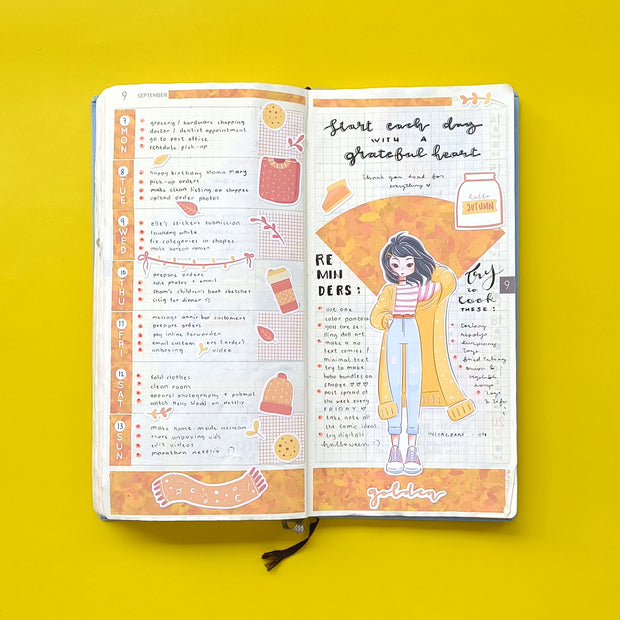 9 SEPTEMBER
7 MON
grocery / hardware shopping
doctor / dentist appointment
go to post office
schedule pick-up
8 TUE
happy birthday Mama Mary
pick-up orders
make clean listing on shopee
upload order photos
9 WED
elle's stickers submission
laundry white
fix categories in shopee
make korean ramen
10 THU
prepare orders
edit photos + email
sham's children's book sketches
citsg for dinner :)
11 FRI
message annie bar customers
prepare orders
pay inline forwarder
email custom ers (order)
unboxing video
12 SAT
fold clothes
clean room
apparel photography + pubmat
watch Hello World on Netflix
13 SUN
make home-made
more unboxing vids
edit videos
marathon netflix :)
Start each day
WITH A
grateful heart
thank you Lord for
everything
hello
AUTUMN
RE
MIN
DERS:
use one
color pantone
you are se-
lling doll art
make a no
text comics /
minimal text
try to make
hobo bundles on
shopee
post spread of
the week every
FRIDAY
take note all
the comic ideas
try digitals
halloween :)
try
to
cook
THESE:
9
vegetable
INSTAGRAM
golden